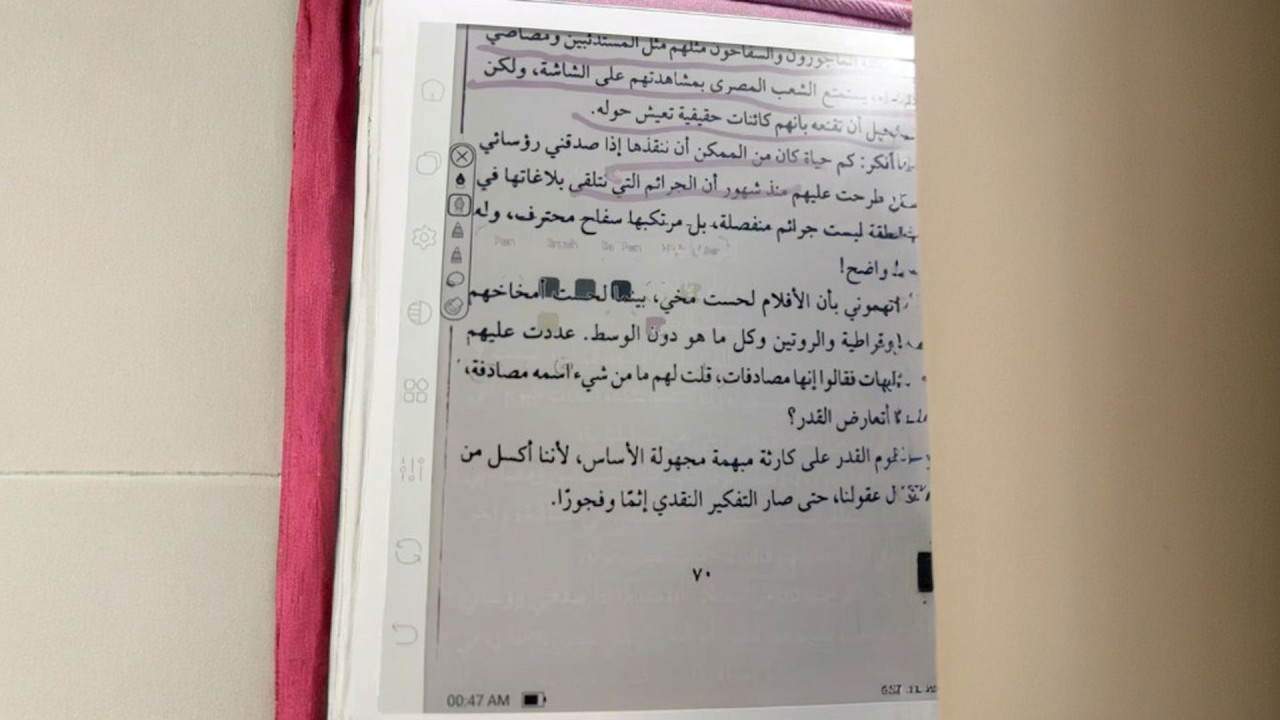 المأجورون والسفاحون مثلهم مثل المستذئبين ومصاصي
يستمتع الشعب المصرى بمشاهدتهم على الشاشة، ولكن
أن تقنعه بأنهم كائنات حقيقية تعيش حوله.
أفكر: كم حياة كان من الممكن أن ننقذها إذا صدقني رؤسائي
طرحت عليهم منذ شهور أن الجرائم التي نتلقى بلاغاتها في
ليست جرائم منفصلة، بل مرتكبها سفاح محترف، وله
واضح!
اتهموني بأن الأفلام لحست مخي، بينما لحست أمخاخهم
والروتين وكل ما هو دون الوسط. عددت عليهم
فقالوا إنها مصادفات، قلت لهم ما من شيء اسمه مصادفة،
أتعارض القدر؟
القدر على كارثة مبهمة مجهولة الأساس، لأننا أكسل من
عقولنا، حتى صار التفكير النقدي إثمًا وفجورًا.
٧٠
00:47 AM